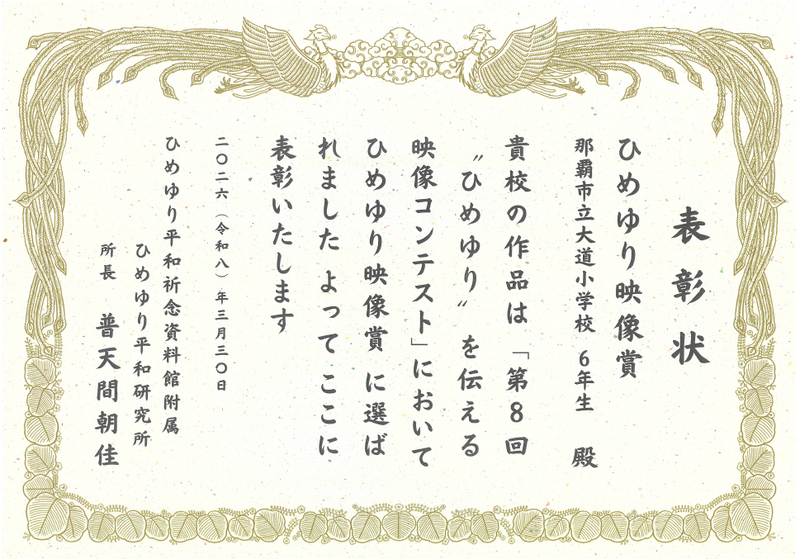 表彰状
ひめゆり映像賞
那覇市立大道小学校 6年生 殿
貴校の作品は「第8回
〝ひめゆり〟を伝える
映像コンテスト」において
ひめゆり映像賞に選ば
れました よって ここに
表彰いたします
二〇二六(令和八)年三月三〇日
ひめゆり平和祈念資料館附属
ひめゆり平和研究所
所長 普天間朝佳